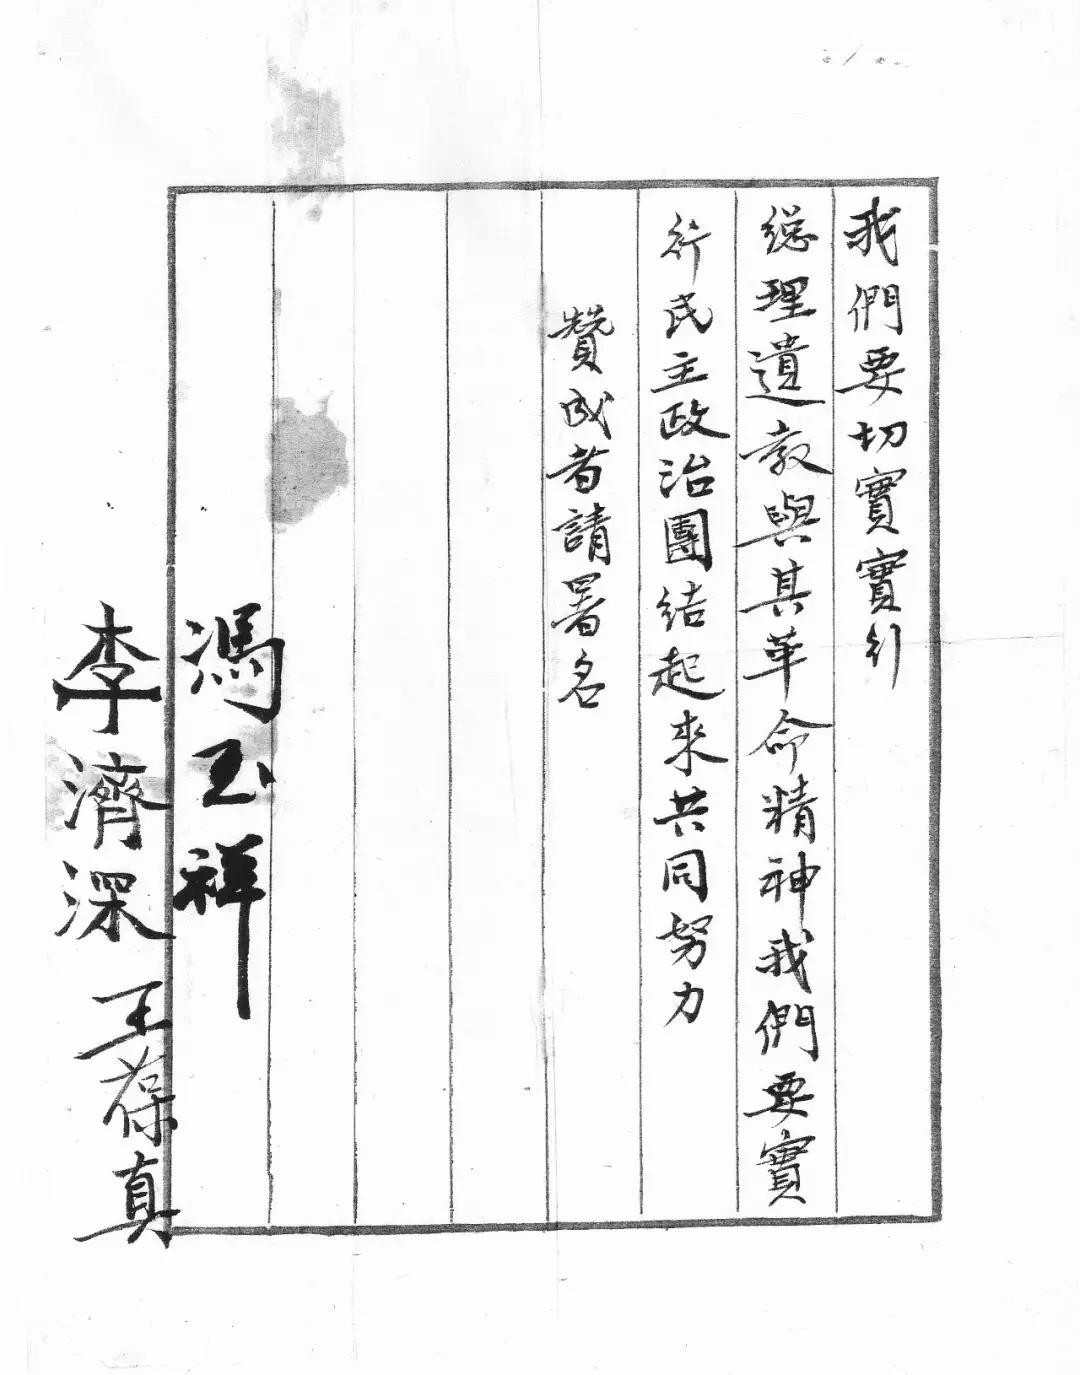 我們要切實實行
總理遺教與其革命精神我們要實
行民主政治團結起來共同努力
贊成者請署名
馮玉祥
李濟深
王葆真